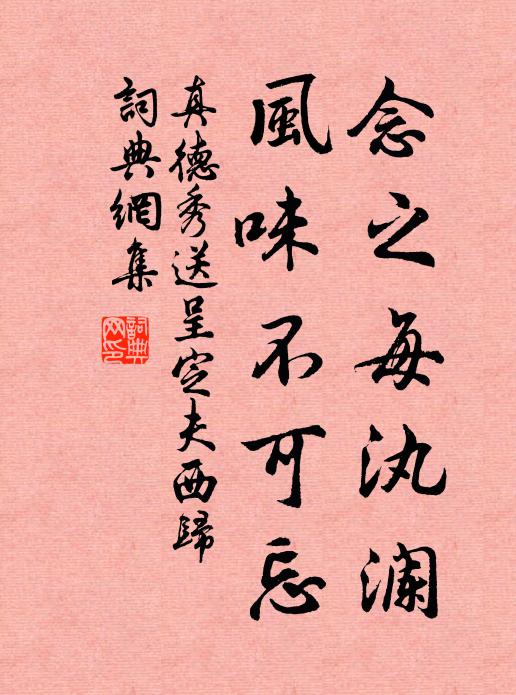 念之每汍瀾
風味不可忘
真德秀送呈定夫西歸
詞典網集
詞典网印